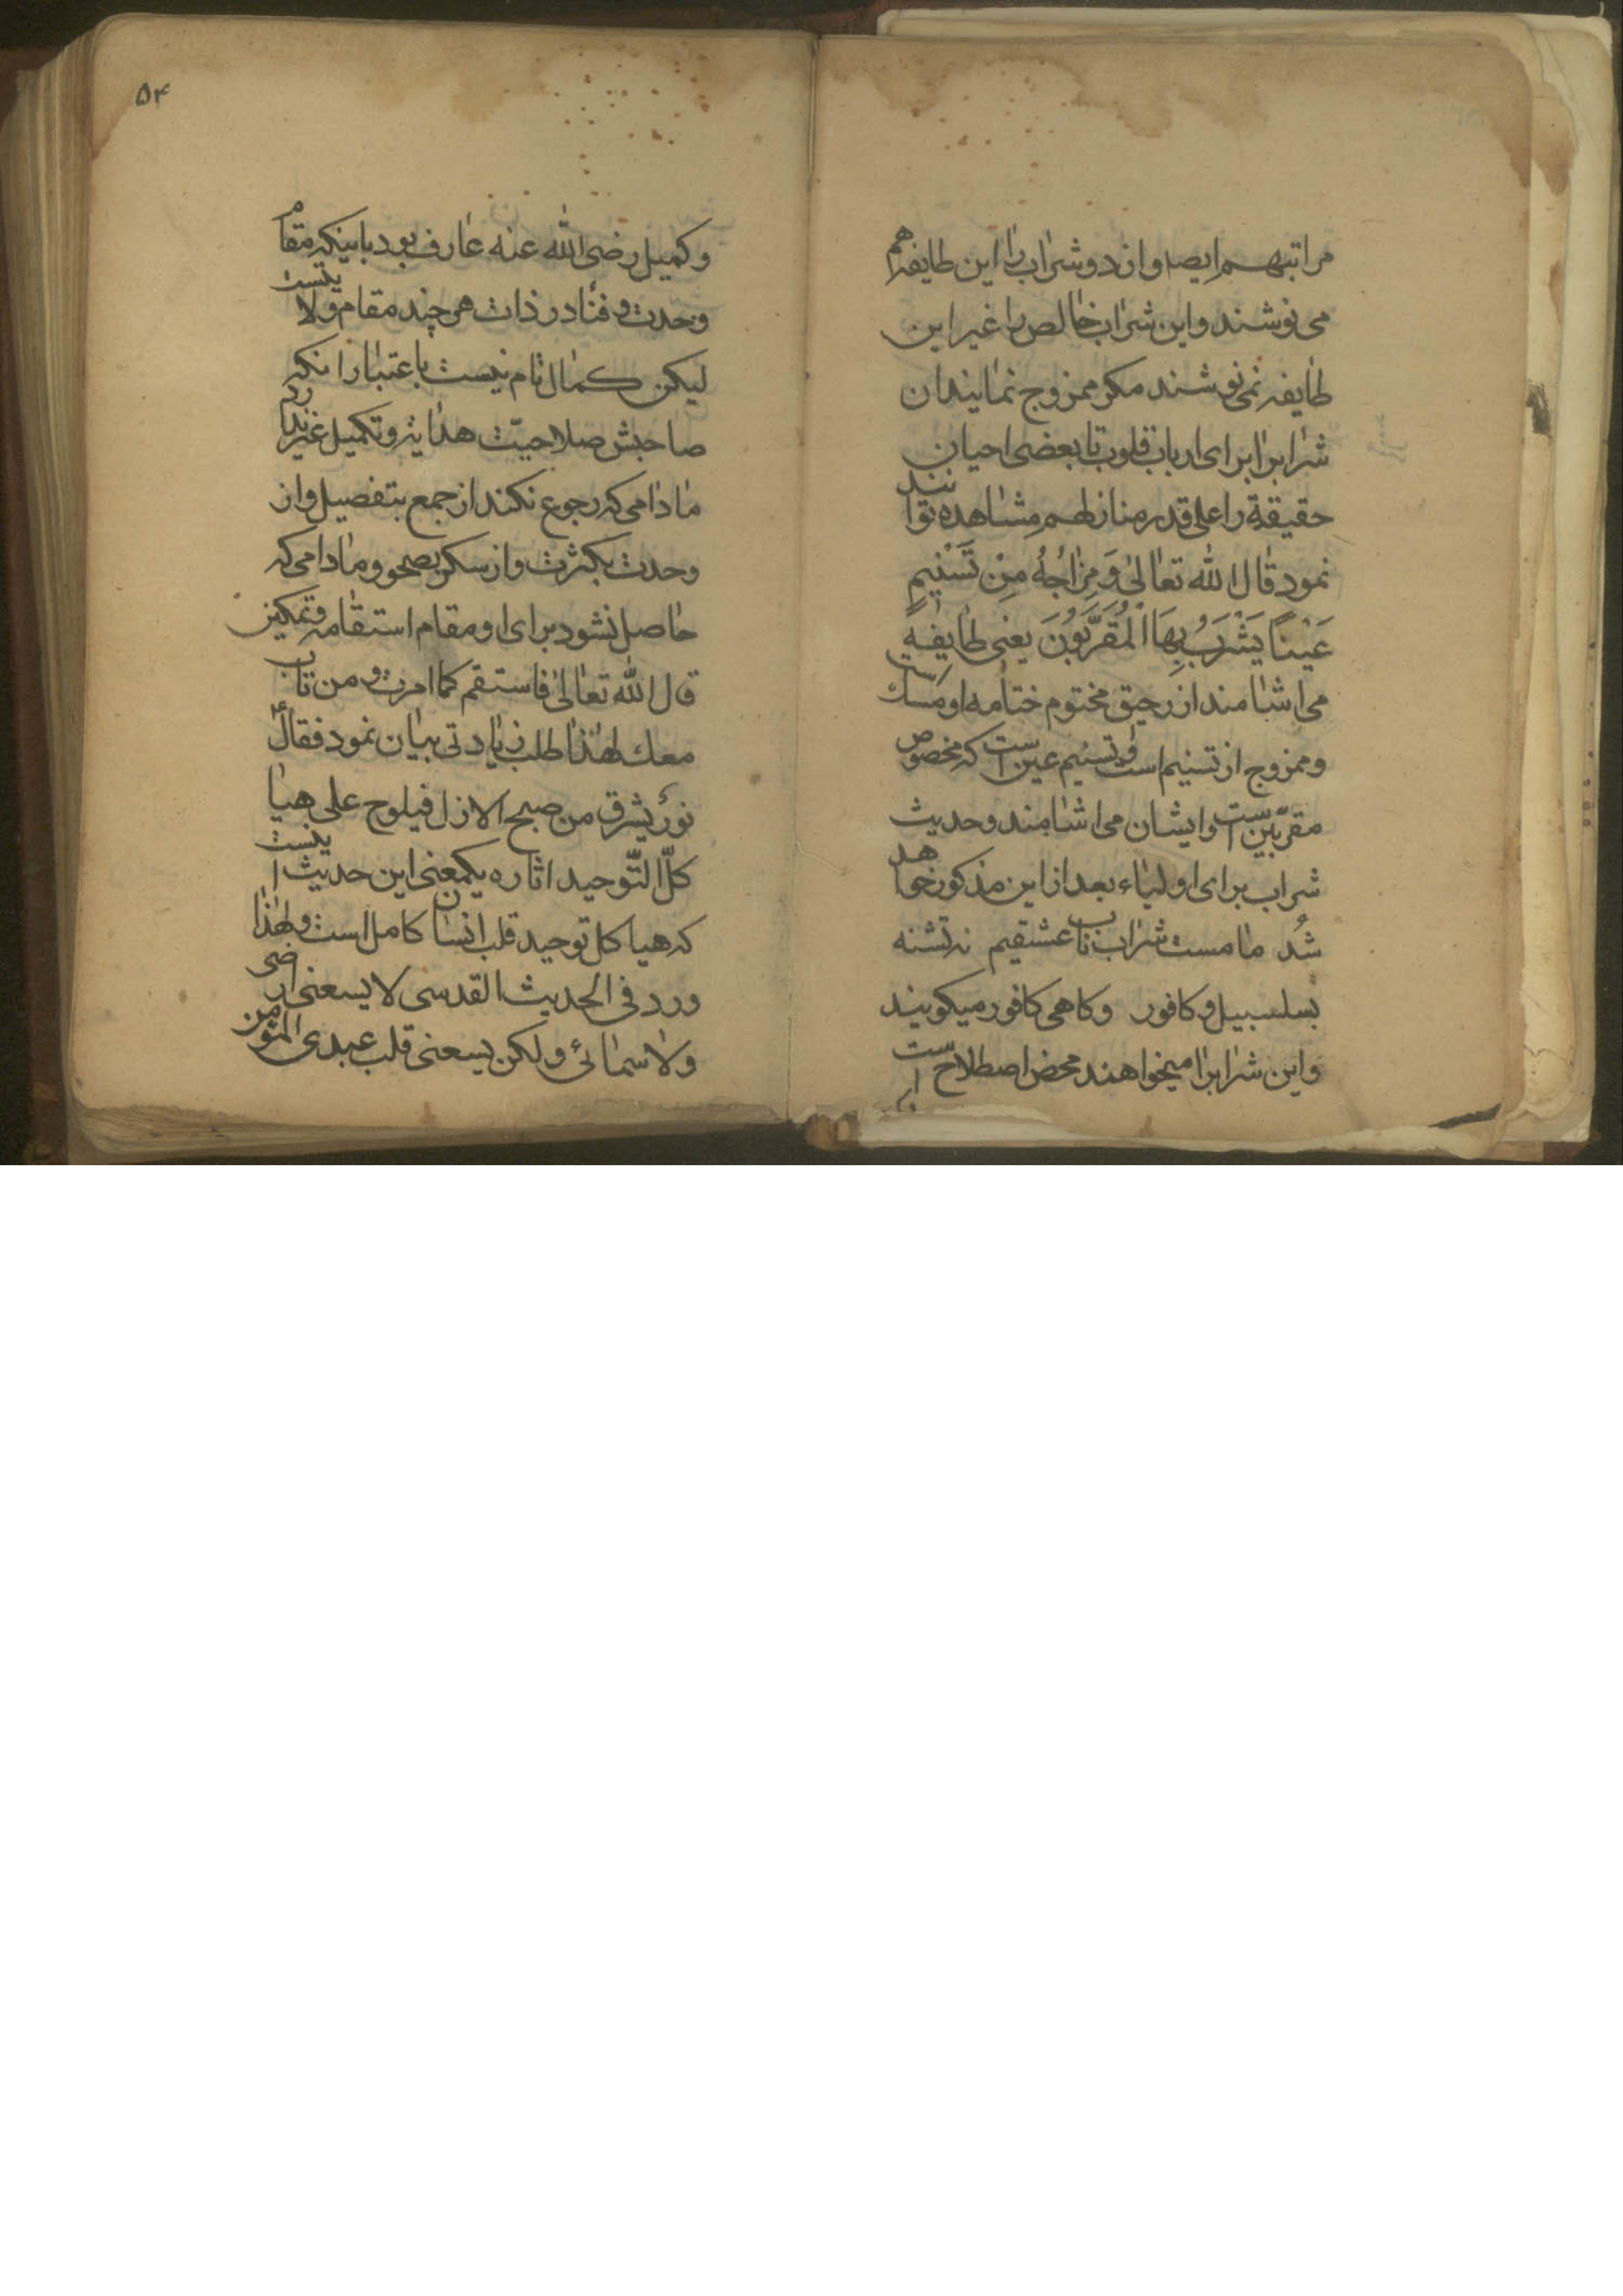 مراتبهم ایصا و ازد و شراب را این طایفه هم
می نوشند و این شراب خالص را غیر این
طایفه نمی نوشند مکر ممزوج نمایند ان
شرابرا برای ارباب قلوب تا بعضی احیان
حقیقة را علی قدر منازلهم مشاهده توانند
نمود قال الله تعالی وَمِزَاجُهُ مِنْ تَسْنِیمٍ
عَیْناً یَشْرَبُ بِهَا الْمُقَرَّبُونَ یعنی طایفهٔ
می اشامند از رحیق مختوم ختامه او مسک است
و ممزوج از تسنیم است و تسنیم عین است که مخصوص
مقربین است و ایشان می اشامند و حدیث
شراب برای اولیاء بعد از این مذکور خواهد
شد ما مست شراب ناب عشقیم نه تشنه
بسلسبیل و کافور و کاهی کافور میکویند
و این شرابرا میخواهند محض اصطلاح است
۵۴
و کمیل رضی الله عنه عارف بود باینکه مقام
وحدت و فنا در ذات هر چند مقام ولایتست
لیکن کمال تام نیست باعتبار انکه
صاحبش صلاحیت هدایة و تکمیل غیر ندارد
مادامی که رجوع نکند از جمع بتفصیل و از
وحدت بکثرت و از سکر بصحو و مادامی که
حاصل نشود برای او مقام استقامه و تمکین
قال الله تعالی فاستقم کما امرت و من تاب
معك لهذا طلب زیادتی بیان نمود فقالؑ
نورٌ یشرق من صبح الازل فیلوح علی هیا
کلّ التّوحید اثاره یکمعنی این حدیث اینست
که هیاکل توحید قلب انسان کامل است و لهذا
ورد فی الحدیث القدسی لا یسعنی ارضی
ولا سمائی ولکن یسعنی قلب عبدی المؤمن